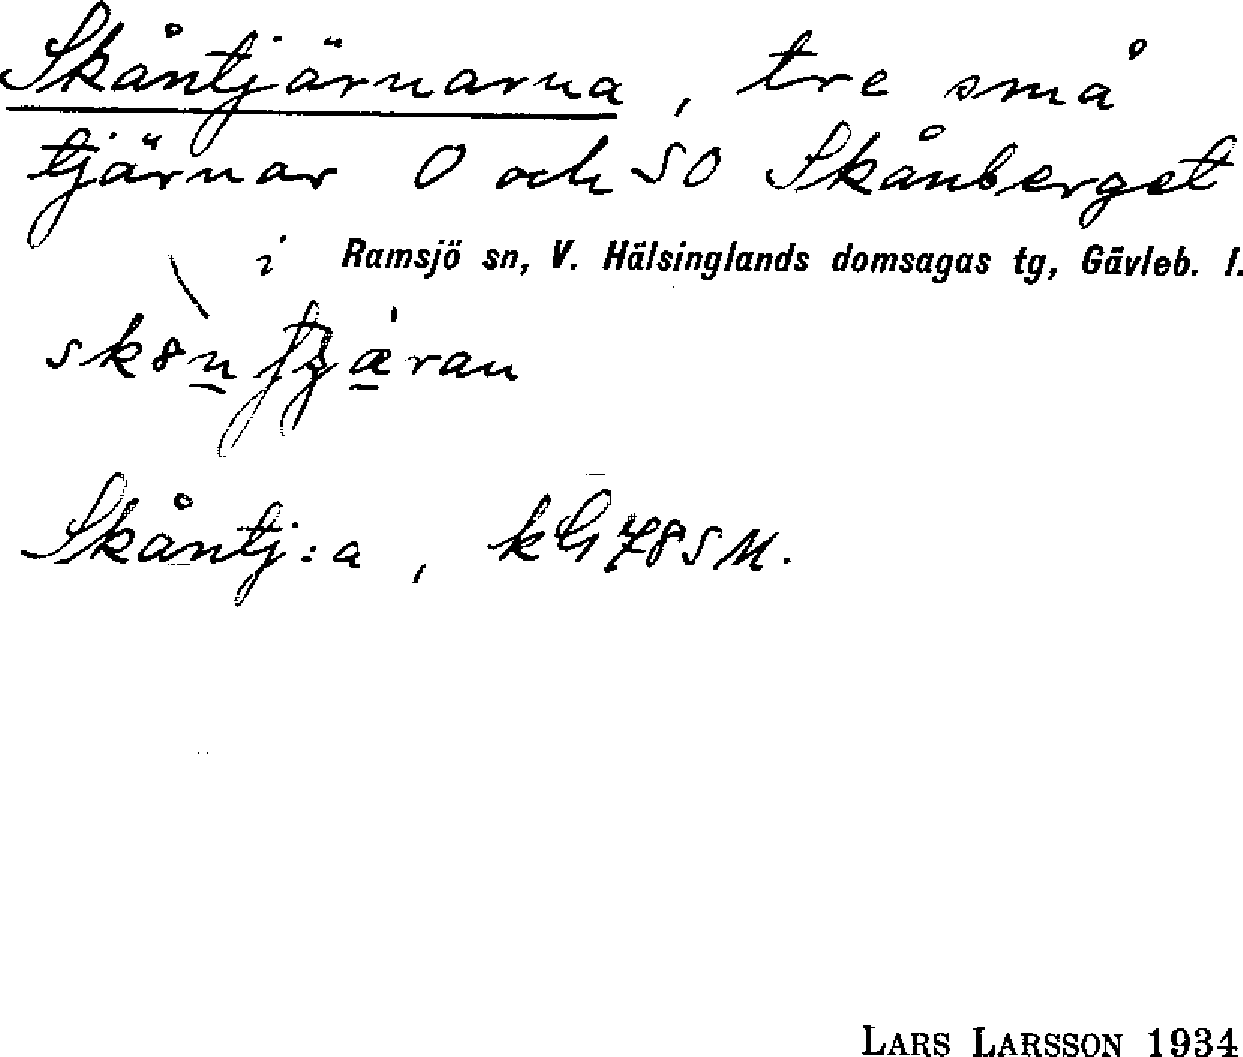 Skåntjärnarna, tre små
tjärnar O och SO Skånberget
i Ramsjö sn, V. Hälsinglands domsagas tg, Gävleb. l.
Skåntj:a, kG 78SM.
LARS LARSSON 1934